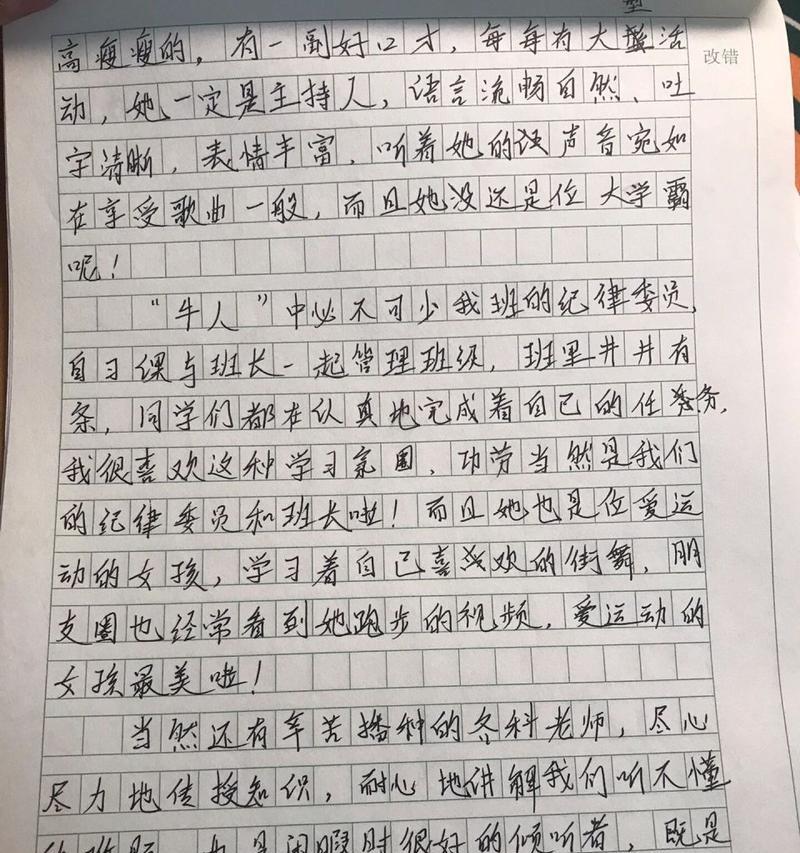 型
改错
高瘦瘦的，有一副好口才，每每有大型活
动，她一定是主持人，语言流畅自然、吐
字清晰，表情丰富，听着她的声音宛如
在享受歌曲一般，而且她没还是位大学霸
呢！
“牛人”中必不可少我班的纪律委员，
自习课与班长一起管理班级，班里井井有
条，同学们都在认真地完成着自己的任务，
我很喜欢这种学习氛围，功劳当然是我们
的纪律委员和班长啦！而且她也是位爱运
动的女孩，学习着自己喜欢的街舞，朋
友圈也经常看到她跑步的视频，爱运动的
女孩最美啦！
当然还有辛苦播种的各科老师，尽心
尽力地传授知识，耐心地讲解我们听不懂
的难题，也是闲暇时很好的倾听者，既是